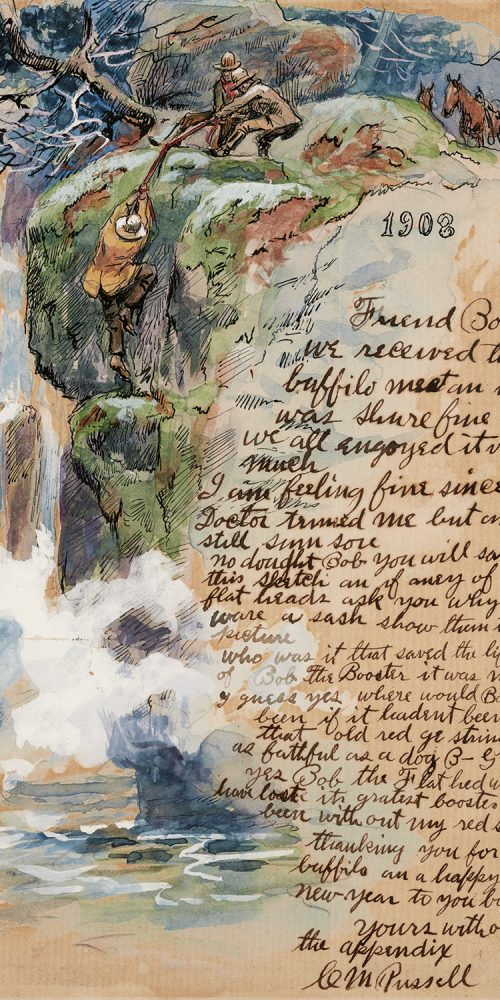 1908
Friend Bo
we received t
buffilo meet an
was shure fine
we all engoyed it v
much
I am feeling fine since
Doctor trimed me but a
still sum sore
no dought Bob you will sa
this sketch an if aney of
flat heads ask you why
ware a sash show them
picture
who was it that saved the li
of Bob the Booster it was
I guess yes where would B
been if it hadent been
that old red ge strin
as faithful as a dog B-
yes Bob the Flat hed
have lost its gratest booster
been with out my red s
thanking you for
buffilo an a happy
new year to you bo
yours witho
the appendix
CM Russell